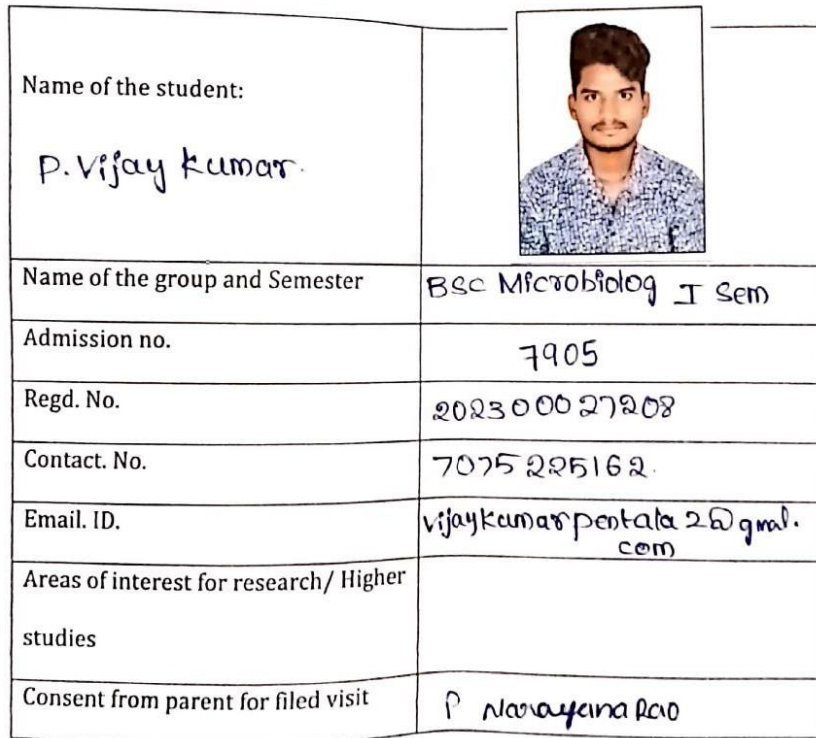 Name of the student:
P. Vijay kumar.
Name of the group and Semester
BSC Microbiolog I Sem
Admission no.
7905
Regd. No.
202300027208
Contact. No.
7075225162.
Email. ID.
vijaykumarpentala2@gmal.
com
Areas of interest for research/ Higher
studies
Consent from parent for filed visit
P Narayana Rao